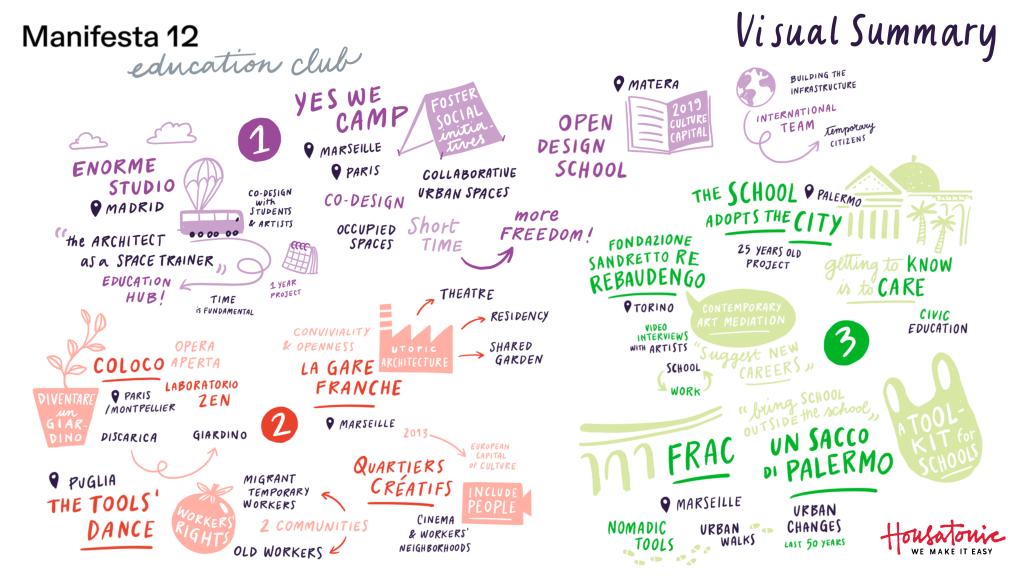 Manifesta 12
education club
Visual Summary
1
ENORME
STUDIO
MADRID
"the ARCHITECT
as a SPACE TRAINER"
EDUCATION
HUB!
CO-DESIGN
with
STUDENTS
& ARTISTS
1 YEAR
PROJECT
TIME
is FUNDAMENTAL
YES WE
CAMP
MARSEILLE
PARIS
FOSTER
SOCIAL
initia-
tives
COLLABORATIVE
URBAN SPACES
CO-DESIGN
OCCUPIED
SPACES
Short
TIME
more
FREEDOM!
OPEN
DESIGN
SCHOOL
MATERA
2019
CULTURE
CAPITAL
BUILDING THE
INFRASTRUCTURE
INTERNATIONAL
TEAM
temporary
CITIZENS
2
COLOCO
OPERA
APERTA
PARIS
/MONTPELLIER
LABORATORIO
ZEN
DIVENTARE
un
GIAR-
DINO
DISCARICA
GIARDINO
CONVIVIALITY
& OPENNESS
LA GARE
FRANCHE
MARSEILLE
UTOPIC
ARCHITECTURE
THEATRE
RESIDENCY
SHARED
GARDEN
PUGLIA
THE TOOLS'
DANCE
WORKERS'
RIGHTS
MIGRANT
TEMPORARY
WORKERS
2 COMMUNITIES
OLD WORKERS
2013
EUROPEAN
CAPITAL
OF CULTURE
QUARTIERS
CRÉATIFS
INCLUDE
PEOPLE
CINEMA
& WORKERS'
NEIGHBORHOODS
3
THE SCHOOL
ADOPTS THE CITY
PALERMO
25 YEARS OLD
PROJECT
getting to KNOW
is to CARE
CIVIC
EDUCATION
FONDAZIONE
SANDRETTO RE
REBAUDENGO
TORINO
CONTEMPORARY
ART MEDIATION
VIDEO
INTERVIEWS
WITH ARTISTS
"Suggest NEW
CAREERS"
SCHOOL
WORK
FRAC
MARSEILLE
NOMADIC
TOOLS
URBAN
WALKS
"bring SCHOOL
OUTSIDE the school"
UN SACCO
DI PALERMO
URBAN
CHANGES
LAST 50 YEARS
A TOOL-
KIT for
SCHOOLS
Housatonic
WE MAKE IT EASY